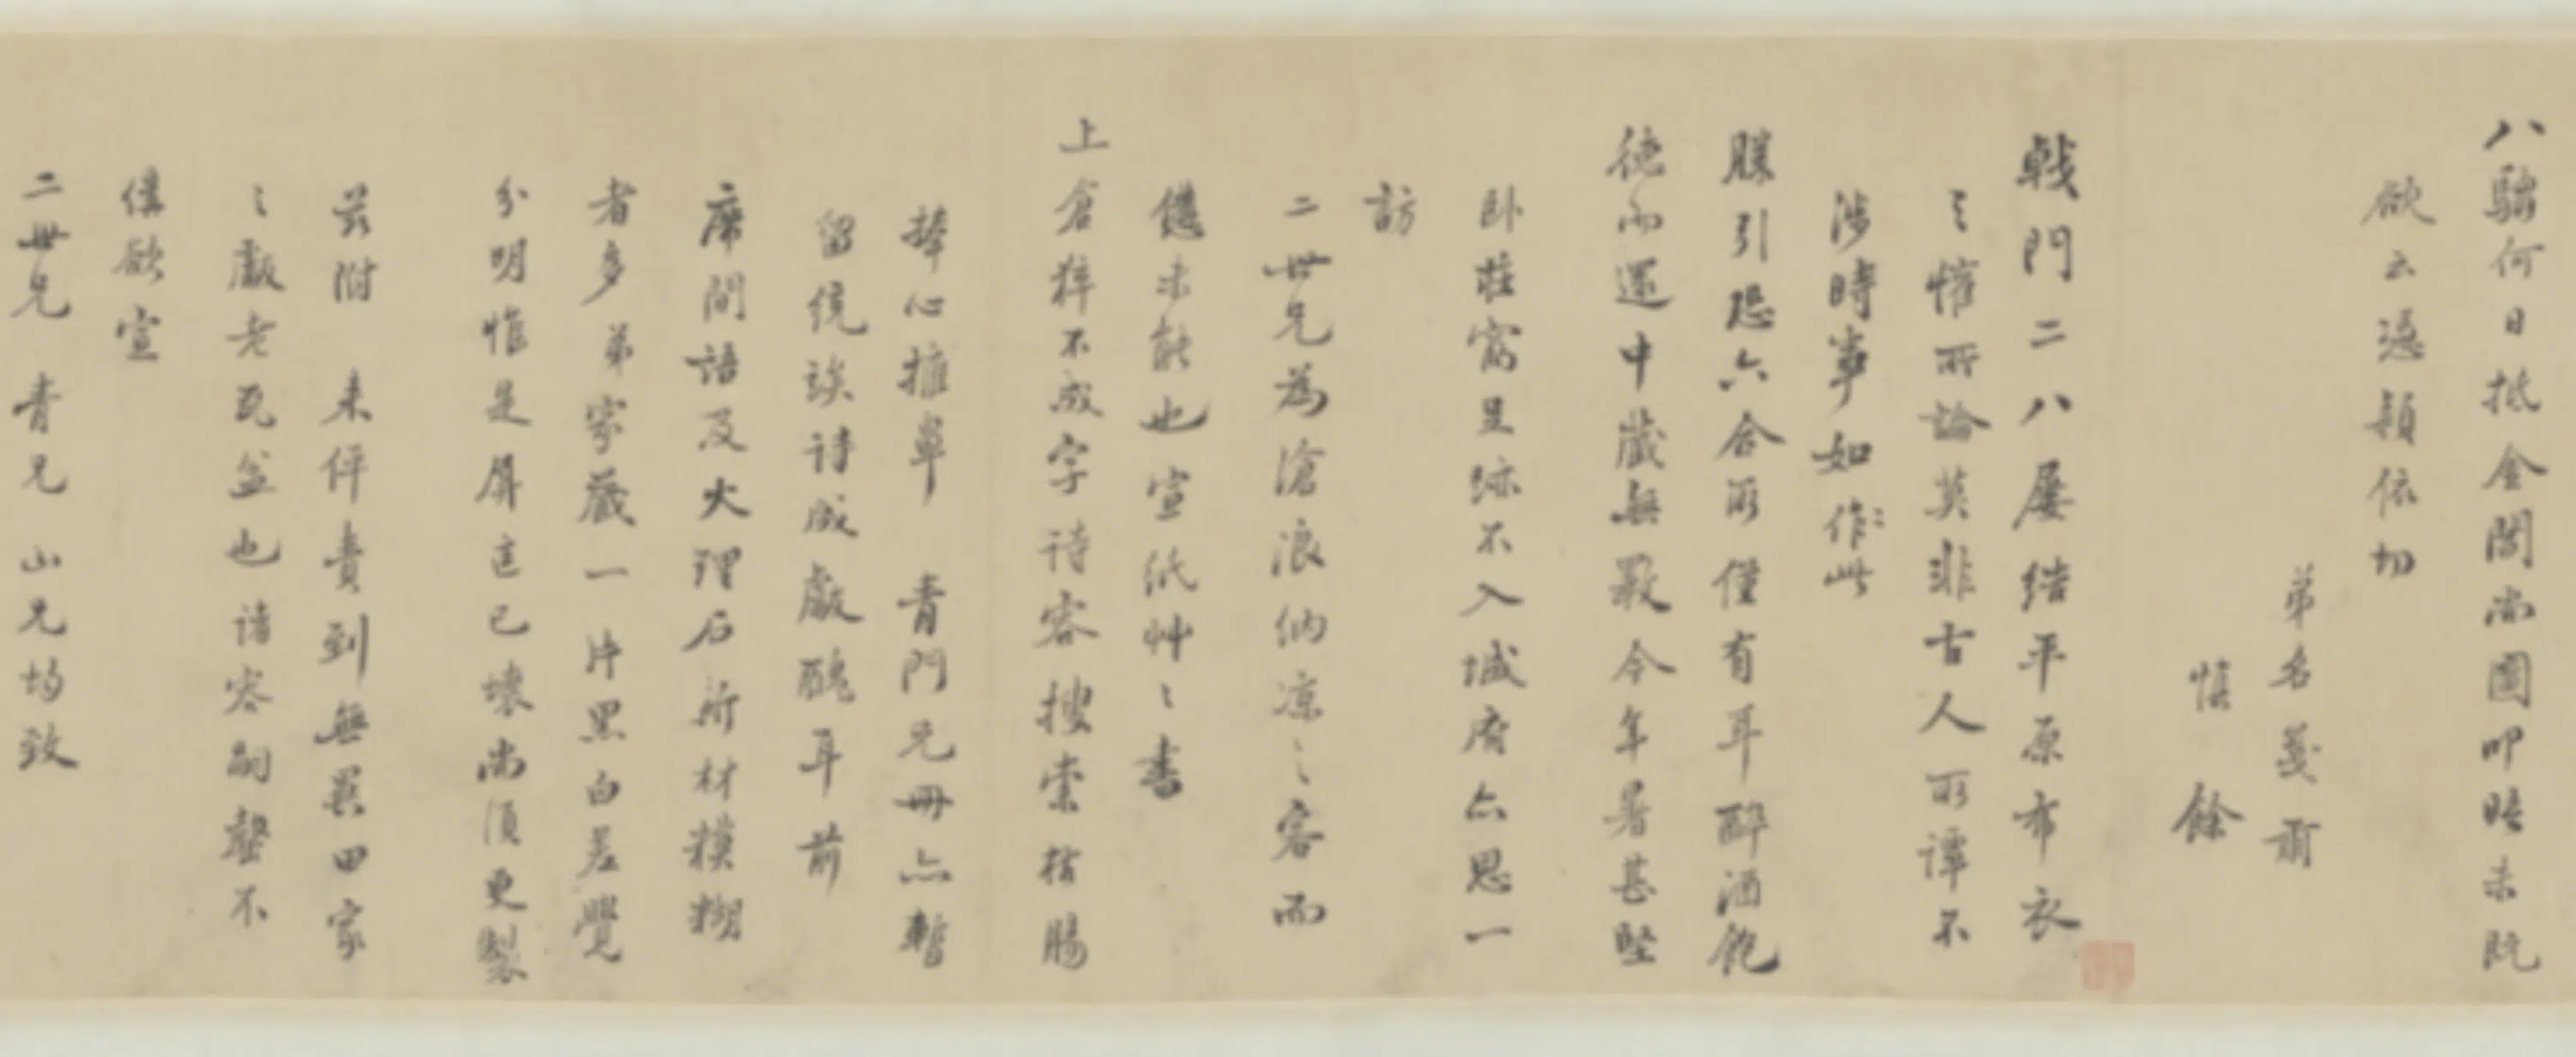 八駿何日抵金閶尚圖叩晤未既
欲云憑穎依切
弟名箋肅
慎餘
戟門二八屢結平原布衣
之懽所論莫非古人所譚不
涉時事如作此
勝引恐六合所僅有耳醉酒飽
德而還中藏無斁今年暑甚堅
臥荘窩足跡不入城府亦思一
訪
二世兄為滄浪納涼之客而
僛未能也宣紙艸〻書
上倉猝不成字詩容搜索枯腸
捧心擁鼻 青門兄冊亦暫
留統俟詩成獻醜耳前
席間語及大理石所材模糊
者多弟家藏一片黑白差覺
分明惟是屏送已壞尚須更製
茲附 来伻賫到無異田家
之獻老瓦盆也諸容嗣罄不
僅欲宣
二世兄 青兄 山兄均致